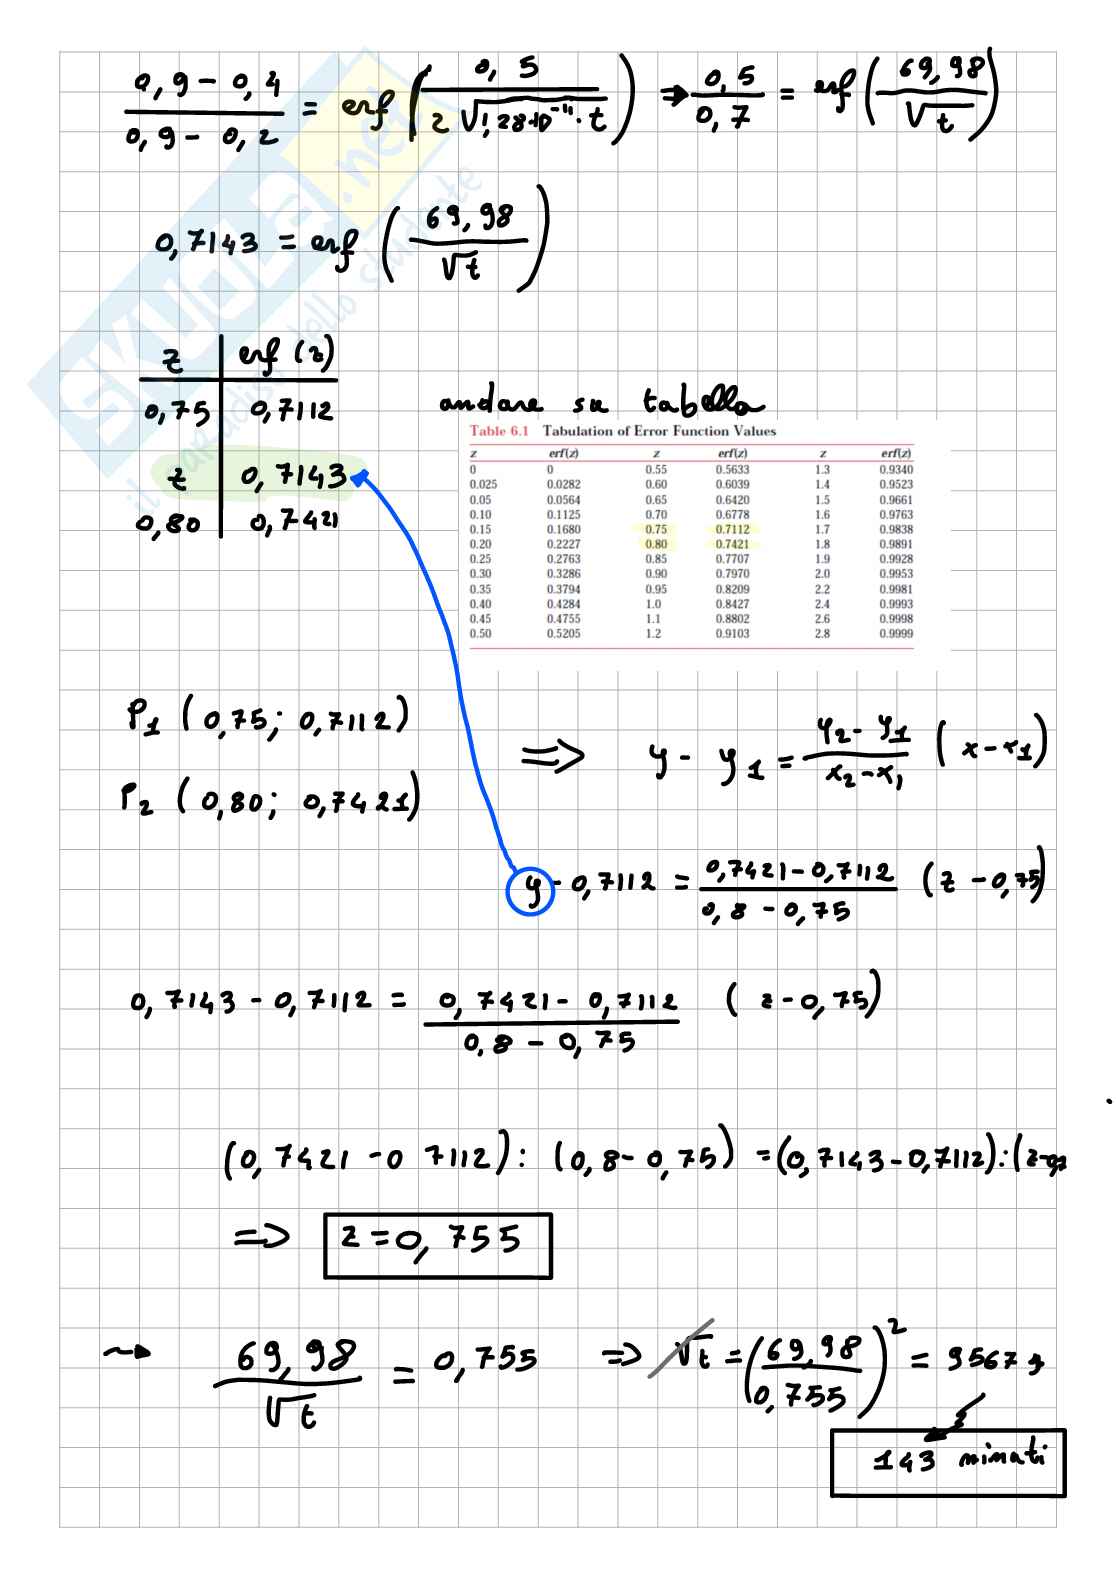 (0,9 - 0,4)/(0,9 - 0,2) = erf (0,5/(2 √1,28·10⁻¹¹·t)) ⇒ 0,5/0,7 = erf (69,98/√t)
0,7143 = erf (69,98/√t)
z | erf (z)
0,75 | 0,7112
z | 0,7143
0,80 | 0,7421
andare su tabella
Table 6.1 Tabulation of Error Function Values
z erf(z) z erf(z) z erf(z)
0 0 0.55 0.5633 1.3 0.9340
0.025 0.0282 0.60 0.6039 1.4 0.9523
0.05 0.0564 0.65 0.6420 1.5 0.9661
0.10 0.1125 0.70 0.6778 1.6 0.9763
0.15 0.1680 0.75 0.7112 1.7 0.9838
0.20 0.2227 0.80 0.7421 1.8 0.9891
0.25 0.2763 0.85 0.7707 1.9 0.9928
0.30 0.3286 0.90 0.7970 2.0 0.9953
0.35 0.3794 0.95 0.8209 2.2 0.9981
0.40 0.4284 1.0 0.8427 2.4 0.9993
0.45 0.4755 1.1 0.8802 2.6 0.9998
0.50 0.5205 1.2 0.9103 2.8 0.9999
P1 (0,75; 0,7112)
P2 (0,80; 0,7421)
⇒ y - y1 = (y2 - y1)/(x2 - x1) (x - x1)
y - 0,7112 = (0,7421 - 0,7112)/(0,8 - 0,75) (z - 0,75)
0,7143 - 0,7112 = (0,7421 - 0,7112)/(0,8 - 0,75) (z - 0,75)
(0,7421 - 0 7112) : (0,8 - 0,75) = (0,7143 - 0,7112) : (z-
⇒ z = 0,755
→ 69,98/√t = 0,755 ⇒ √t = (69,98/0,755)² = 9567 s
143 minuti
SKUOLA.net
il paradiso dello studente